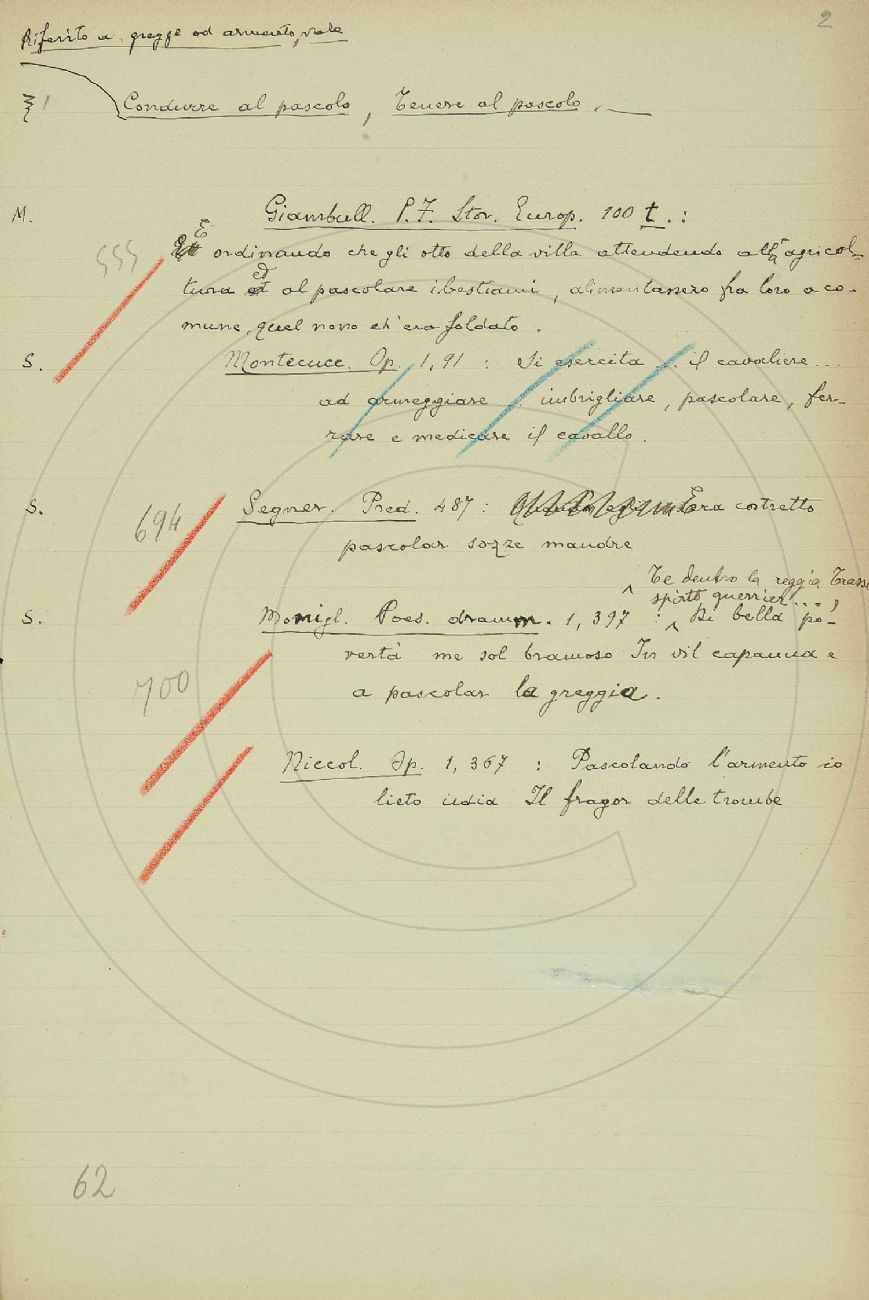 2
Riferito a gregge od armento, vale
§ 1 Condurre al pascolo, Tenere al pascolo. —
M. Giambull. P. F. Stor. Europ. 100 t.:
E ordinando che gli otto della villa attendendo all'agricol-
tura ed al pascolare i bestiami, alimentassero fra loro a co-
mune, quel nono ch'era soldato.
555
S. Montecucc. Op. 1, 91 : Si esercita ... il cavaliere ...
ad armeggiare ... imbrigliare, pascolare, fer-
rare e medicare il cavallo.
S. 694 Segner. Pred. 487 : Era costretto
pascolar sozze mandre
Te dentro la reggia Trasse
spirto guerrier ...,
S. Monigl. Poes. dramm. 1, 397 : Di bella po-
vertà me sol bramoso In vil capanna e
700 a pascolar la greggia.
Niccol. Op. 1, 367 : Pascolando l'armento io
lieto udia Il fragor delle trombe
62